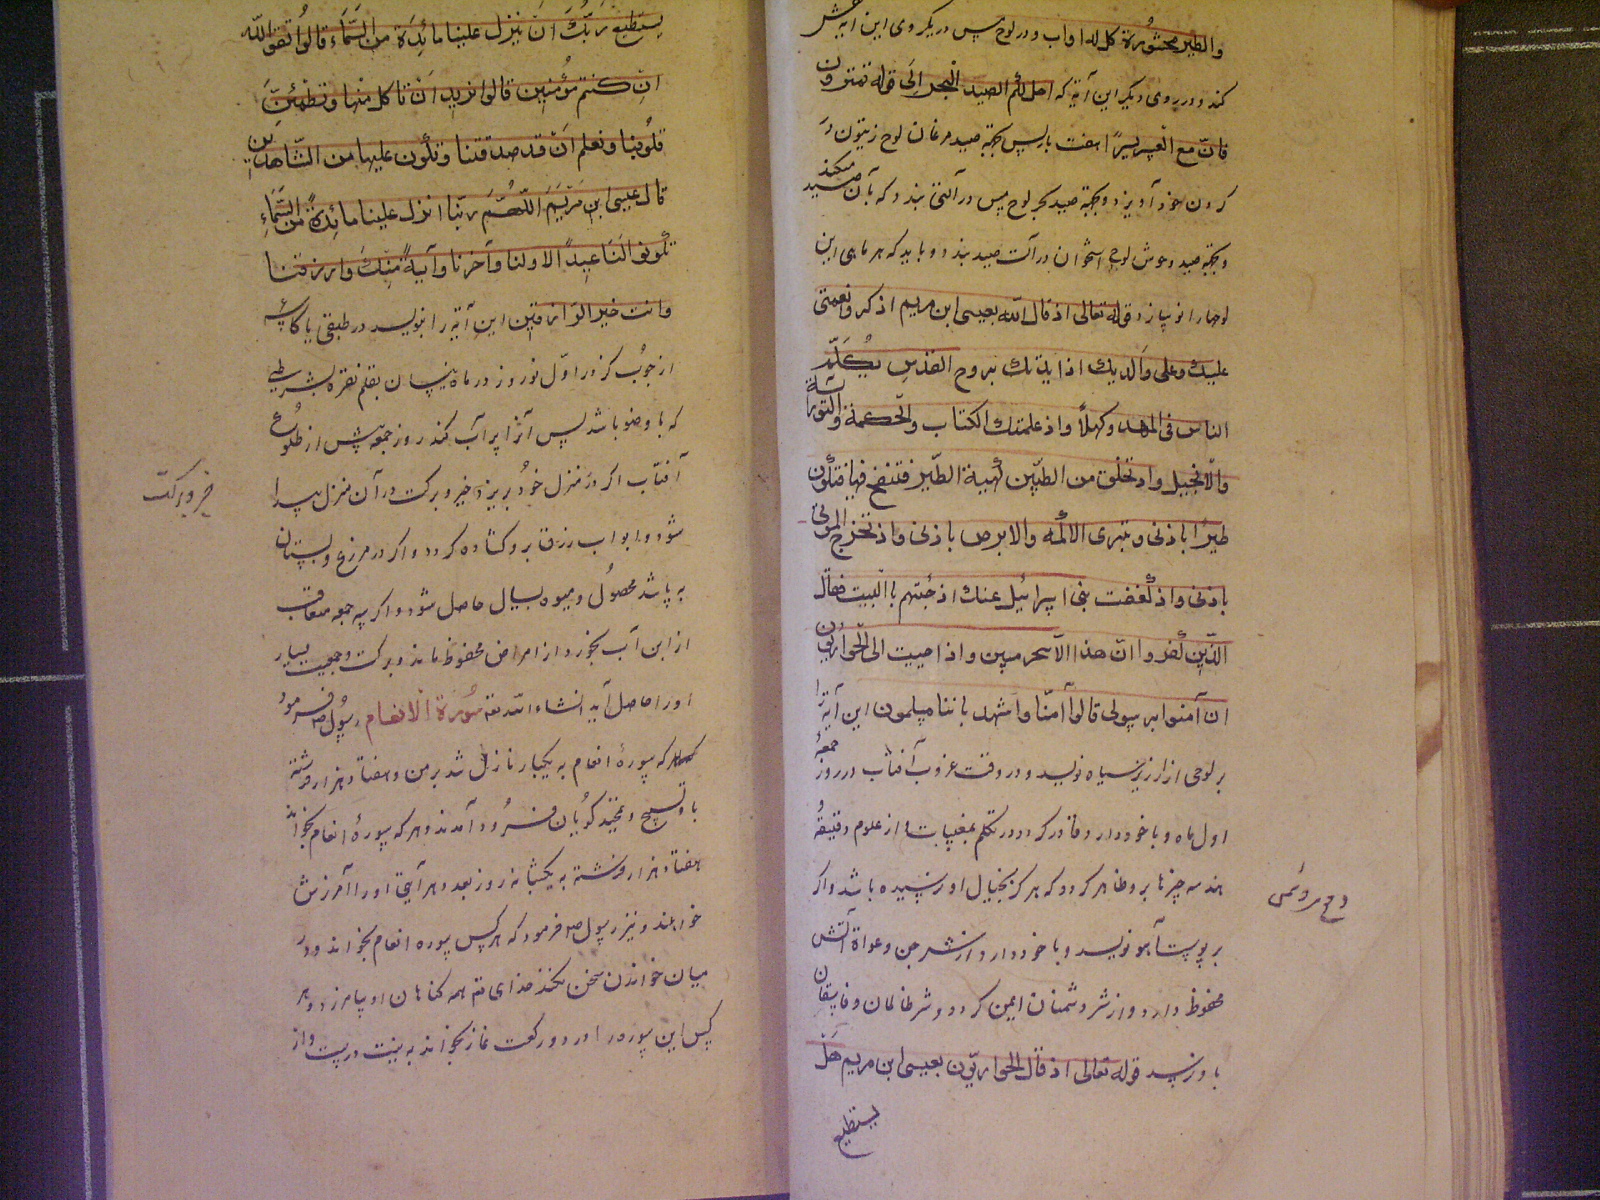 والطیر محشورة کل له اواب و در لوح پس در یکروی این آیه نقش
کند و در روی دیگر این آیة که احل لکم الصید البحر الی قوله تمترون
فان مع العسر یسرًا هفت بار پس بجهة صید مرغان لوح زیتون در
کردن خود آویزد و بجهة صید بحر لوح مس در آلتی بندد که بآن صید میکند
و بجهة صید وحوش لوح استخوان در آلت صید بندد و باید که هر ماهی این
لوحها را نو سازد قوله تعالی اذ قال الله یعیسی ابن مریم اذکر نعمتی
علیک وعلی والدیک اذ ایدتک بروح القدس تکلم
الناس فی المهد وکهلًا واذ علمتک الکتاب والحکمة والتوراة
والانجیل واذ تخلق من الطین کهیئة الطیر فتنفخ فیها فتکون
طیرًا باذنی وتبری الاکمه والابرص باذنی واذ تخرج الموتی
باذنی واذ کففت بنی اسرائیل عنک اذ جئتهم بالبینت فقال
الذین کفروا ان هذا الا سحر مبین واذ اوحیت الی الحواریون
ان آمنوا برسولی قالوا آمنا واشهد باننا مسلمون این آیة را
بر لوحی از ارزیز سیاه نویسد و در وقت غروب آفتاب در روز جمعهٔ
اول ماه و با خود دارد قادر کردد در تکلم بمغیبات و از علوم دقیقهٔ
هندسه چیزها بر او ظاهر کردد که هرکز بخیال او نرسیده باشد و اکر
بر پوست آهو نویسد و با خود دارد از شر جن و
محفوظ دارد و از شر دشمنان ایمن کردد و شر ظالمان و فاسقان
باو نرسد قوله تعالی اذ قال الحواریون یعیسی ابن مریم هل
یستطیع
یستطیع ربک ان ینزل علینا مائدة من السماء قالوا اتقوا الله
ان کنتم مؤمنین قالوا نرید ان ناکل منها وتطمئن
قلوبنا ونعلم ان قد صدقتنا ونکون علیها من الشاهدین
قال عیسی ابن مریم اللهم ربنا انزل علینا مائدة من السماء
تکون لنا عیدًا لاولنا وآخرنا وآیةً منک وارزقنا
وانت خیر الرازقین این آیة را بنویسد در طبقی یا کاسه
از چوب کز در اول نوروز در ماه نیسان بقلم نقره بشرطی
که با وضو باشد پس آنرا پر آب کند روز جمعه پیش از طلوع
آفتاب اکر در منزل خود بریزد خیر و برکت در آن منزل پیدا
خیر و برکت
شود و ابواب رزق بر او کشاده کردد و اکر در مزرع و بستان
بپاشد محصول و میوه بسیار حاصل شود و اکر سه جمعه متعاقب
از این آب بخورد از امراض محفوظ ماند و برکت و جمعیت بسیار
او را حاصل آید انشاء الله تعه سورة الانعام رسول ص فرمود
که سورهٔ انعام به یکبار نازل شد بر من و هفتاد هزار فرشته
با و تسبیح و تمجید کویان فرود آمدند و هر که سورهٔ انعام بخواند
هفتاد هزار فرشته به یکشبانه روز بعدد هر آیتی او را آمرزش
خواهند و نیز رسول ص فرمود که هر کس سوره انعام بخواند و در
میان خواندن سخن نکند خدای تعه همه کناهان او بیامرزد و هر
کس این سوره را در دو رکعت نماز بخواند به نیت درست و از